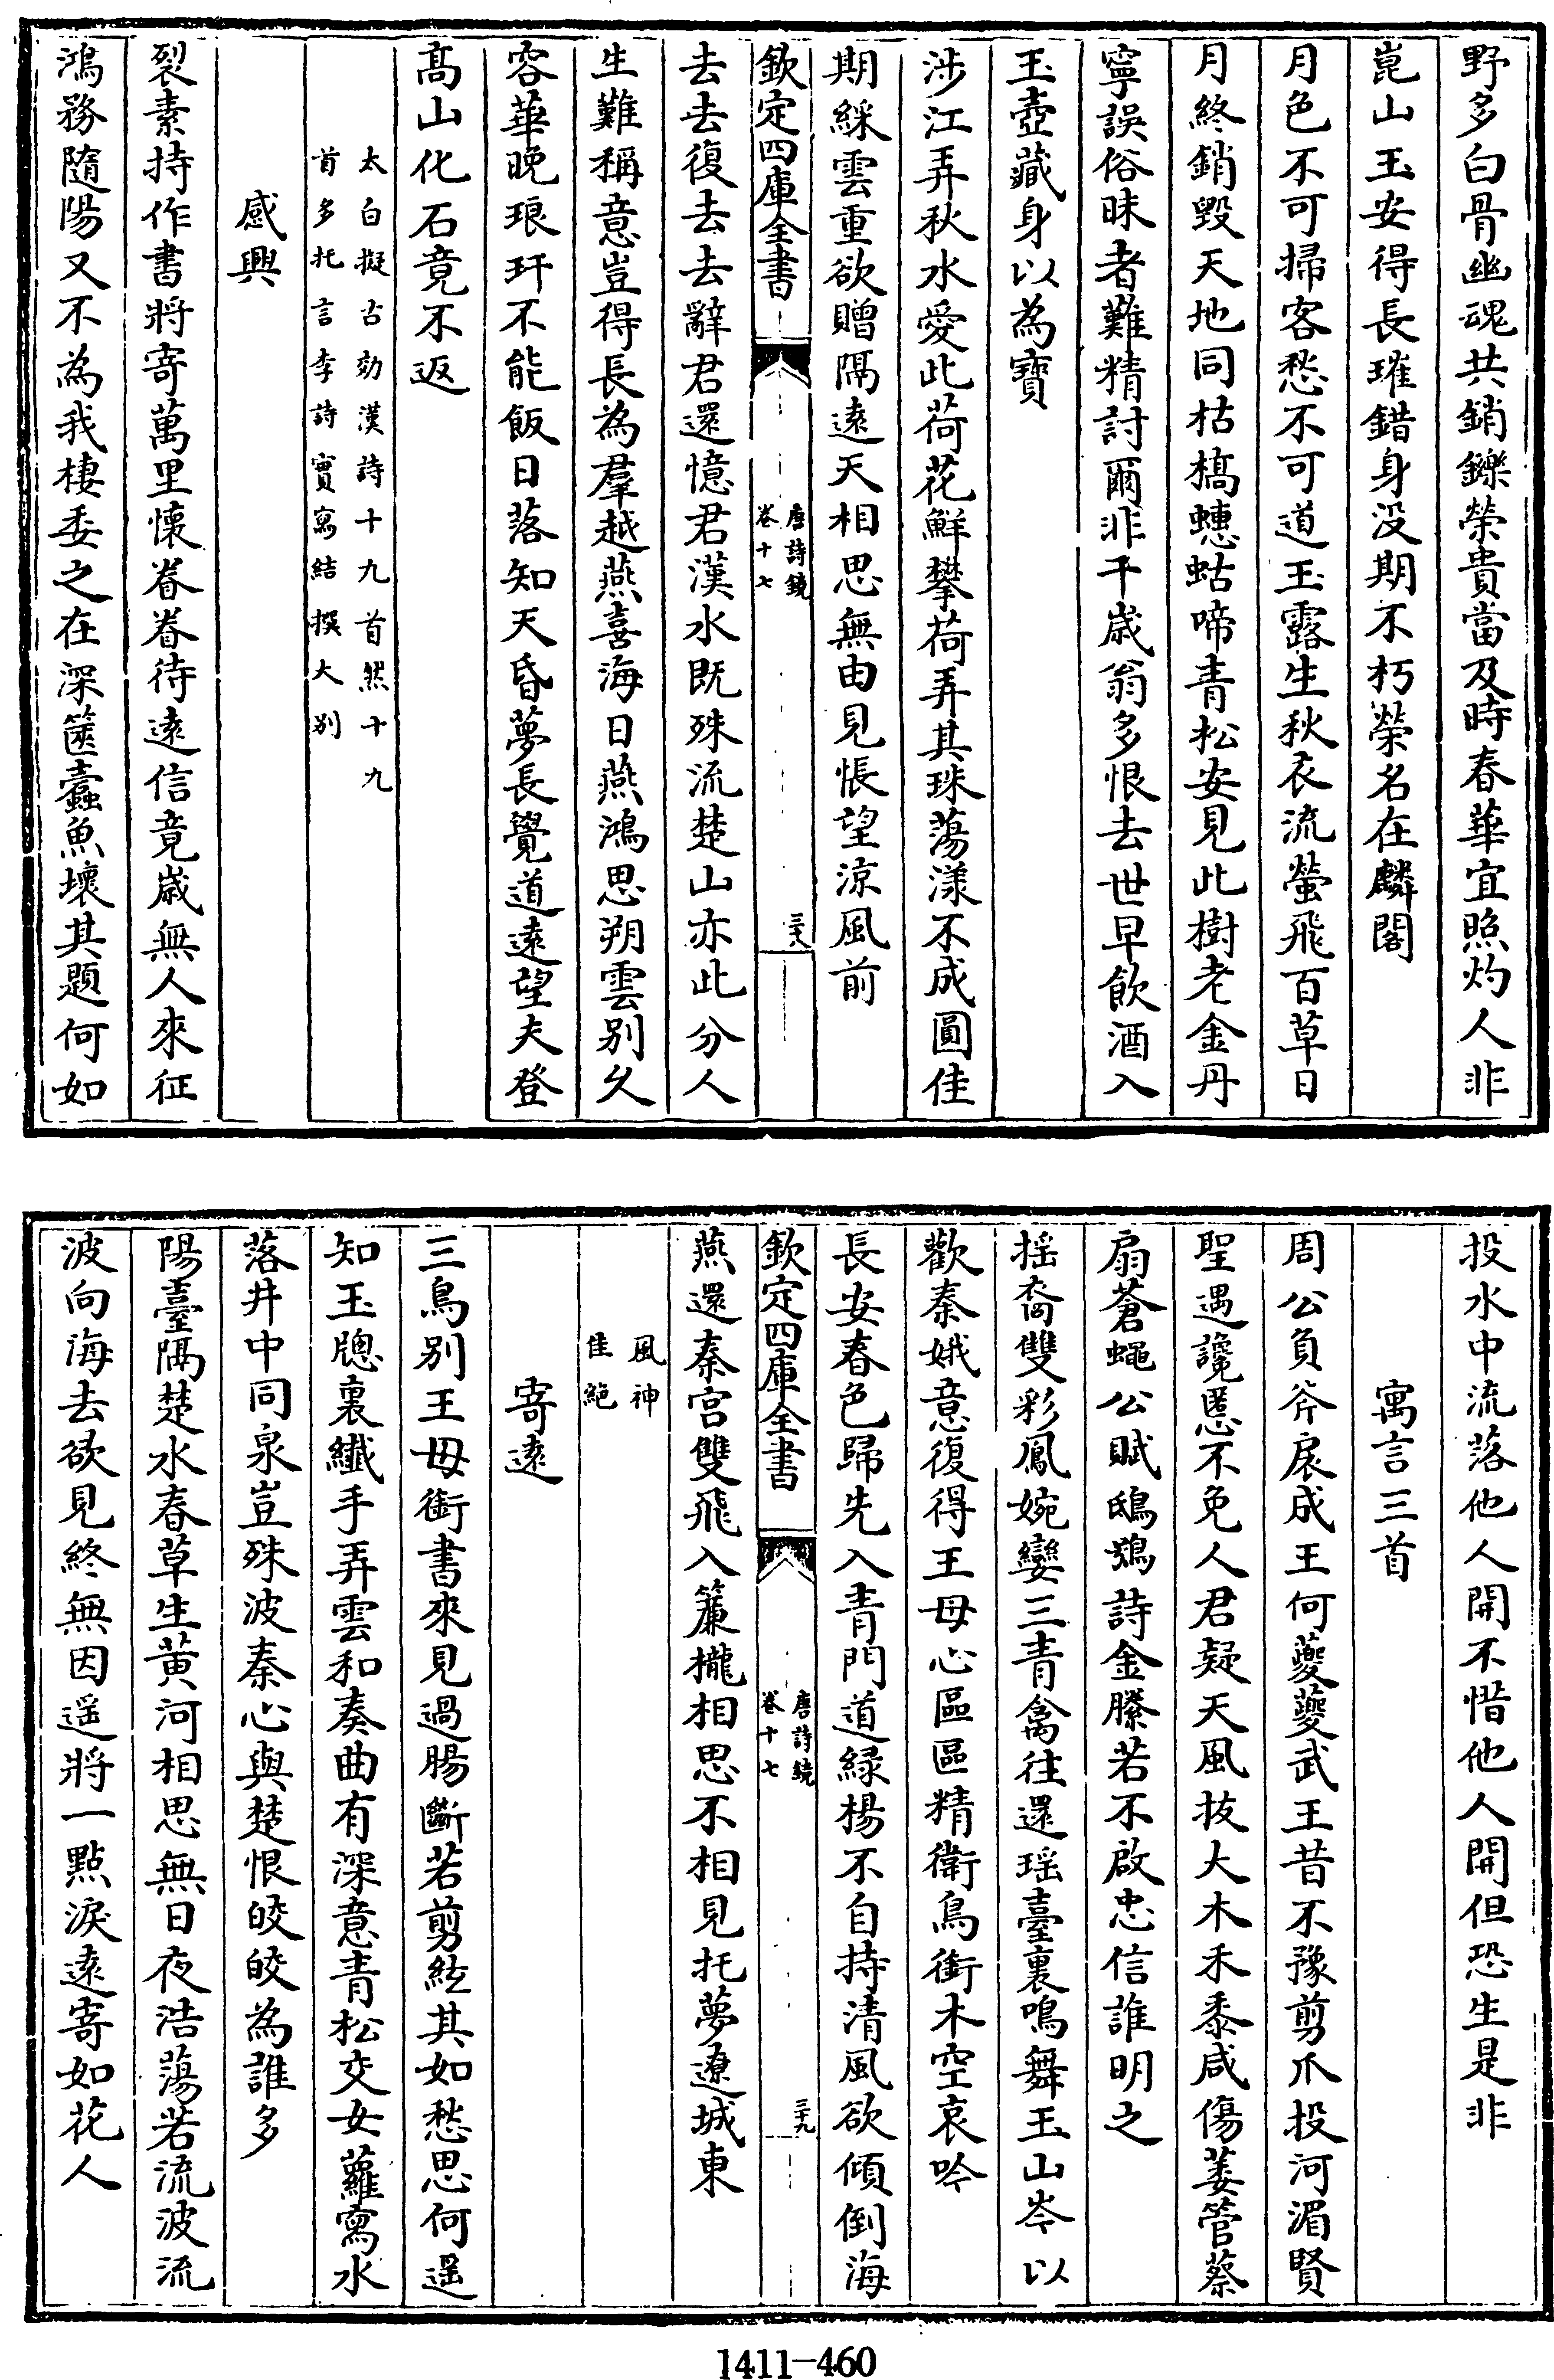 野多白骨幽魂共銷鑠榮貴當及時春華宜照灼人非
崑山玉安得長璀錯身没期不朽榮名在麟閣
月色不可掃客愁不可道玉露生秋衣流螢飛百草日
月終銷毀天地同枯槁蟪蛄啼青松安見此樹老金丹
寧誤俗昧者難精討爾非千歳翁多恨去世早飲酒入
玉壺藏身以為寳
渉江弄秋水愛此荷花鮮攀荷弄其珠蕩漾不成圓佳
期綵雲重欲贈隔逺天相思無由見悵望涼風前
欽定四庫全書
唐詩鏡
卷十七
三十八
去去復去去辭君還憶君漢水既殊流楚山亦此分人
生難稱意豈得長為羣越燕喜海日燕鴻思朔雲别久
容華晚琅玕不能飯日落知天昏夢長覺道逺望夫登
髙山化石竟不返
太白擬古効漢詩十九首然十九
首多托言李詩實寫結撰大别
感興
裂素持作書將寄萬里懷眷眷待逺信竟歳無人來征
鴻務隨陽又不為我棲委之在深篋蠹魚壊其題何如
投水中流落他人開不惜他人開但恐生是非
寓言三首
周公負斧扆成王何夔夔武王昔不豫剪爪投河湄賢
聖遇讒慝不免人君疑天風拔大木禾黍咸傷萎管蔡
扇蒼蠅公賦鴟鴞詩金縢若不啟忠信誰明之
揺裔雙彩鳳婉孌三青禽往還瑶臺裏鳴舞玉山岑以
歡秦娥意復得王母心區區精衛鳥銜木空哀吟
長安春色歸先入青門道緑楊不自持清風欲傾倒海
欽定四庫全書
唐詩鏡
卷十七
三十九
燕還秦宫雙飛入簾櫳相思不相見托夢遼城東
風神
佳絶
寄逺
三鳥别王母銜書來見過腸斷若剪絃其如愁思何遥
知玉牕裏纎手弄雲和奏曲有深意青松交女蘿寫水
落井中同泉豈殊波秦心與楚恨皎皎為誰多
陽臺隔楚水春草生黄河相思無日夜浩蕩若流波流
波向海去欲見終無因遥將一點淚逺寄如花人
1411—460